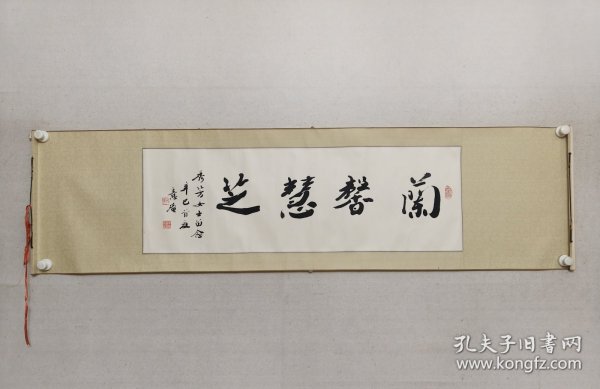 蘭馨慧芝
秀芳女士留念
辛巳
孔夫子旧书网
www.kongfz.com